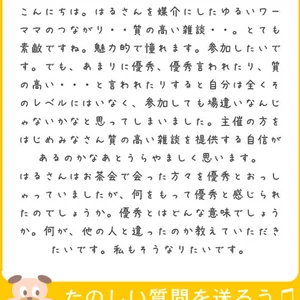 こんにちは。はるさんを媒介にしたゆるいワー
ママのつながり・・質の高い雑談・・。とても
素敵ですね。魅力的で憧れます。参加したいで
す。でも、あまりに優秀、優秀言われたり、質
の高い・・・と言われたりすると自分は全くそ
のレベルにはいなく、参加しても場違いなんじ
ゃないかなと思ってしまいました。主催の方を
はじめみなさん質の高い雑談を提供する自信が
あるのかなあとうらやましく思います。
はるさんはお茶会で会った方々を優秀とおっし
ゃっていましたが、何をもって優秀と感じられ
たのでしょうか。優秀とはどんな意味でしょう
か。何が、他の人と違ったのか教えていただき
たいです。私もそうなりたいです。
たのしい質問を送ろう♫